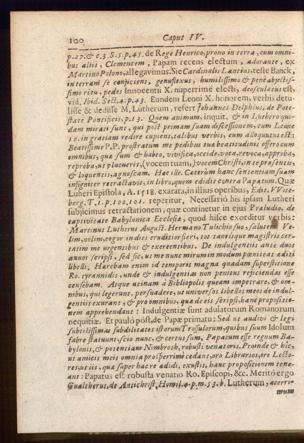 100 Caput IV.
p.27.& c.3.S.5.p.47. de Rege Henrico, prono in terra, cum omni-
bus aliis, Clementem, Papam recens electum, adorante, ex
Martino Polono, allegavimus. Sic Cardinalis Lantius, teste Banck,
in terram se conjiciens, genuflexus, humilissimo & pene abjectis-
simo ritu, pedes Innocentii X. nuperrime electi, deosculatus est,
vid. ibid. Sect.4.p.43. Eundem Leoni X. honorem, verbis detu-
lisse & dedisse M. Lutherum, refert Johannes Delphius, de Pote-
state Pontificis, p.13. Quem animum, inquit, & in Luthero quon-
dam mirati sunt, qui post primam suam discessionem, cum Leone
10. in gratiam redire cupiens, calidis verbis, eum alloquutus est:
Beatissime P.P. prostratum me pedibus tua beatitudinis offero cum
omnibus, qua sum & habeo, vivifica, occide, voca, revoca, approba,
reproba, ut placuerit, vocem tuam, vocem Christi, in te præsentis,
& loquentis, agnoscam. Hac ille. Caterum hanc sententiam suam
insigniter retractavit, in libro, quem edidit contra Papatum. Quæ
Lutheri Epistola, A. 1518 exarata, in illius operibus, Edit. Wite-
berg. T.1.p.100,101. reperitur. Necessariò his ipsam Lutheri
subjicimus retractationem, quæ continetur in ejus Præludio, de
captivitate Babylonica Ecclesiæ, quod hisce exorditur verbis:
Martinus Lutherus August. Hermano Tulichio suo, salutem. Ve-
lim, nolim, cogor indies eruditior fieri, tot tantisque magistris cer-
tatim me urgentibus & exercentibus. De indulgentiis ante duos
annos scripsi, sed sic, ut me nunc mirum in modum pœniteat editi
libelli. Hærebam enim id temporis magna quadam superstitione
Ro. tyrannidis, unde & indulgentias non penitus rejiciendas esse
censebam.
libelli omnes de indul-
gentiis exurant, & pro omnibus, quæ de eis scripsi, hanc propositio-
nem apprehendant: Indulgentiæ sunt adulatorum Romanorum
nequitiæ. Et paulò pòst de Papæ primatu: Sed ut audivi & legi
subtilissimas subtilitates istorum Trossulorum, quibus suum Idolum
fabre statuunt: scio nunc, & certus sum, Papatum esse regnum Ba-
bylonis, & potentiam Nimbroth, robusti venatoris. Proinde & hic,
ut amicis meis omnia prosperrime cedant, oro Librarios, oro Lecto-
res, ut iis, quæ super hac re edidi, exustis, hanc propositionem tene-
ant: Papatus est robusta venatio Ro. Episcopi, &c. Merito ergo
Gualtherus, de Antichrist. Homil.4.p.m.53.b. Lutherum, acerri-
mum